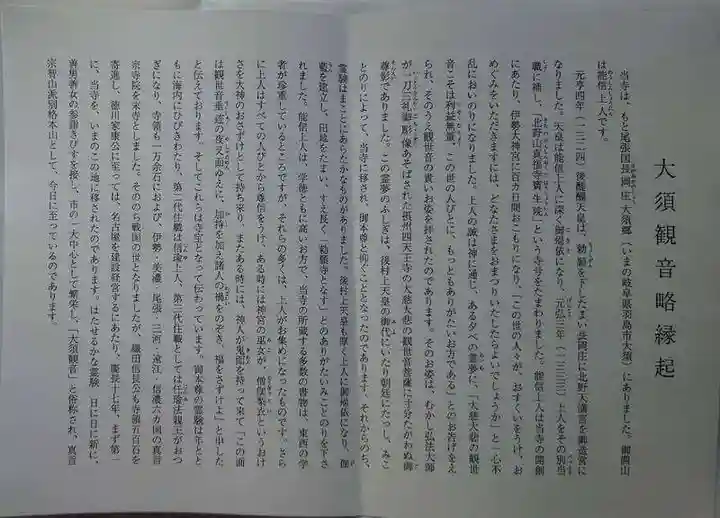 大須観音略縁起
当寺は、もと尾張国長岡庄大須郷（いまの岐阜県羽島市大須）にありました。御開山
は能信上人です。
元亨四年（一三二四）後醍醐天皇は、勅願を下したまい長岡庄に北野天満宮を御造営に
なりました。天皇は能信上人に深く御帰依になり、元弘三年（一三三三）上人をその別当
職に補し、「北野山真福寺寶生院」という寺号をたまわりました。能信上人は当寺の開創
にあたり、伊勢大神宮に百カ日間おこもりになり、「この世の人々が、おすくいをうけ、お
めぐみをいただきますには、どなたさまをおまつりいたしたらよいでしょうか」と一心不
乱においのりになりました。上人の誠は神に通じ、ある夕べの霊夢に、「大慈大悲の観世
音こそは利益無量、この世の人びとに、もっともありがたいお方である」とのお告げをえ
られ、そのうえ観世音の貴いお姿を拝されたのであります。そのお姿は、むかし弘法大師
が一刀三礼彫像あそばされた摂州四天王寺の大慈大悲の観世音菩薩に寸分たがわぬ御
尊影でありました。この霊夢のふしぎは、後村上天皇の御代にいたり朝廷にたっし、みこ
とのりによって、当寺に移され、御本尊と仰ぐこととなったのであります。それからのち、
霊験はまことにあらたかなものがありました。後村上天皇も厚く上人に御帰依になり、伽
藍を建立し、田地をたまい、すえ長く「勅願寺となす」とのありがたいみことのりを下さ
れました。能信上人は、学徳ともに高いお方で、当寺の所蔵する多数の書物は、東西の学
者が珍重しているところですが、それらの多くは、上人がお集めになったものです。さら
に上人はすべての人びとから尊信をうけ、ある時には神宮の巫女が、僧伽梨衣というおけ
さを大神のおさずけとして持ち来り、またある時には、神人が鬼面を持って来て「この面
は観世音垂迹の夜叉面ゆえに、加持を加え諸人の禍をのぞき、福をさずけよ」と申した
と伝えております。そしてこれらは寺宝となって伝わっています。御本尊の霊験は年とと
もに海内にひびきわたり、第二代住職は信瑜上人、第三代住職としては任瑜法親王がおつ
ぎになり、寺領も一万余石におよび、伊勢・美濃・尾張・三河・遠江・信濃六カ国の真言
宗寺院を末寺としました。そののち戦国の世となりましたが、織田信長公も寺領五百石を
寄進し、徳川家康公に至っては、名古屋を建設経営するにあたり、慶長十七年、まず第一
に、当寺を、いまのこの地に移されたのであります。はたせるかな霊験、日に日に新に、
善男善女の参詣きびすを接し、市の一大中心として繁栄し、「大須観音」と俗称され、真言
宗智山派別格本山として、今日に至っているのであります。